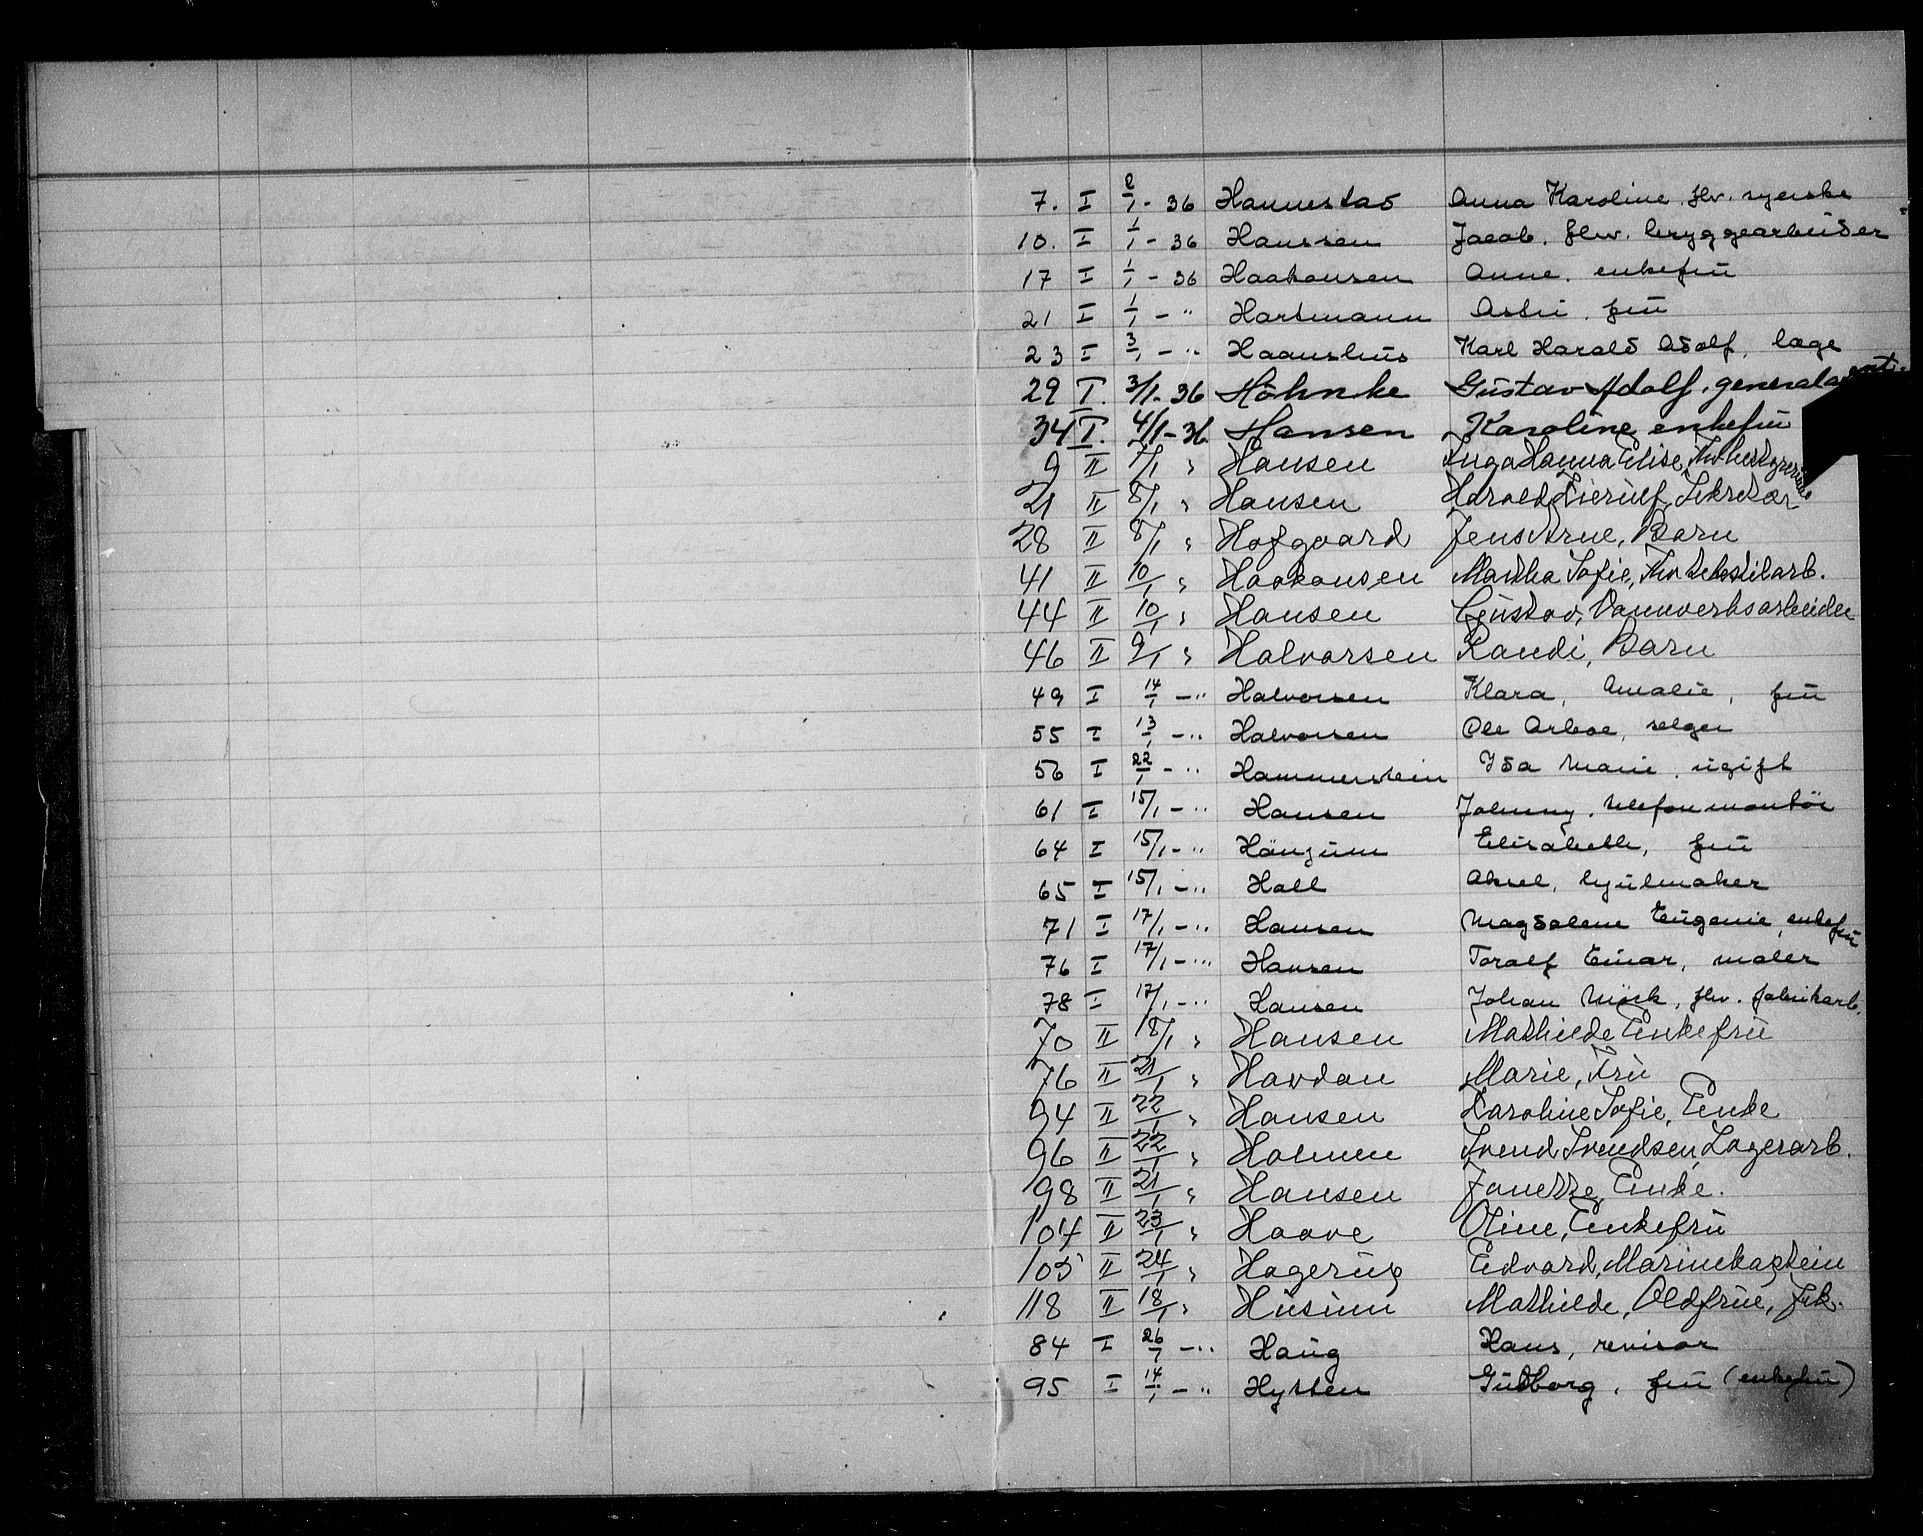 7. I 2/1 - 36 Hannestad Anna Karoline, fhv. syerske
10. I 1/1 - 36 Hanssen Jacob, fhv. bryggearbeider
17 I 1/1 - 36 Haakonsen Anne, enkefru
21 I 1/1 - " Hartmann Astri, fru
23 I 3/1 - " Haanshus Karl Harald Adolf, læge
29 I. 3/1 - 36 Höhnke Gustav Adolf, generalagent.
34 I. 4/1 - 36 Hansen Karoline enkefru
9 II 7/1 " Hansen Inga Hanna Elise, Fhv.
21 II 8/1 " Hansen Harald Lierulf, Sekretær
28 II 8/1 " Hofgaard Jens Arne, Barn
41 II 10/1 " Haakonsen Martha Sofie, Fhv tekstilarb.
44 II 10/1 " Hansen Gustav, Vannverksarbeider
46 II 9/1 " Halvorsen Randi, Barn
49 I 14/1 - " Halvorsen Klara, Amalie, fru
55 I 13/1 - " Halvorsen Ole Arboe, selger
56 I 22/1 - " Hammerstein Ida Marie, ugift
61 I 15/1 - " Hansen Johnny, telefonmontör
64 I 15/1 - " Elisabeth, fru
65 I 15/1 - " Hall Aksel, hjulmaker
71 I 17/1 - " Hansen Magdalene Eugenie, enkefru
76 I 17/1 - " Hansen Toralf Einar, maler
78 I 17/1 - " Hansen Johan Mörk, fhv. fabrikarb.
70 II 18/1 " Hansen Mathilde Enkefru
76 II 21/1 " Havdan Marie, Fru
94 II 22/1 " Hansen Karoline Sofie, Enke
96 II 22/1 " Holmen Svend Svendsen, Lagerarb.
98 II 21/1 " Hansen Janette, Enke.
104 II 23/1 " Haave Oline, Enkefru
105 II 24/1 " Hagerup Edvard, Marinekaptein
118 II 18/1 " Husum Mathilde, Oldfrue, Frk.
84 I 26/1 - " Haug Hans, revisor
95 I 14/1 - " Hytten Gudborg, fru (enkefru)